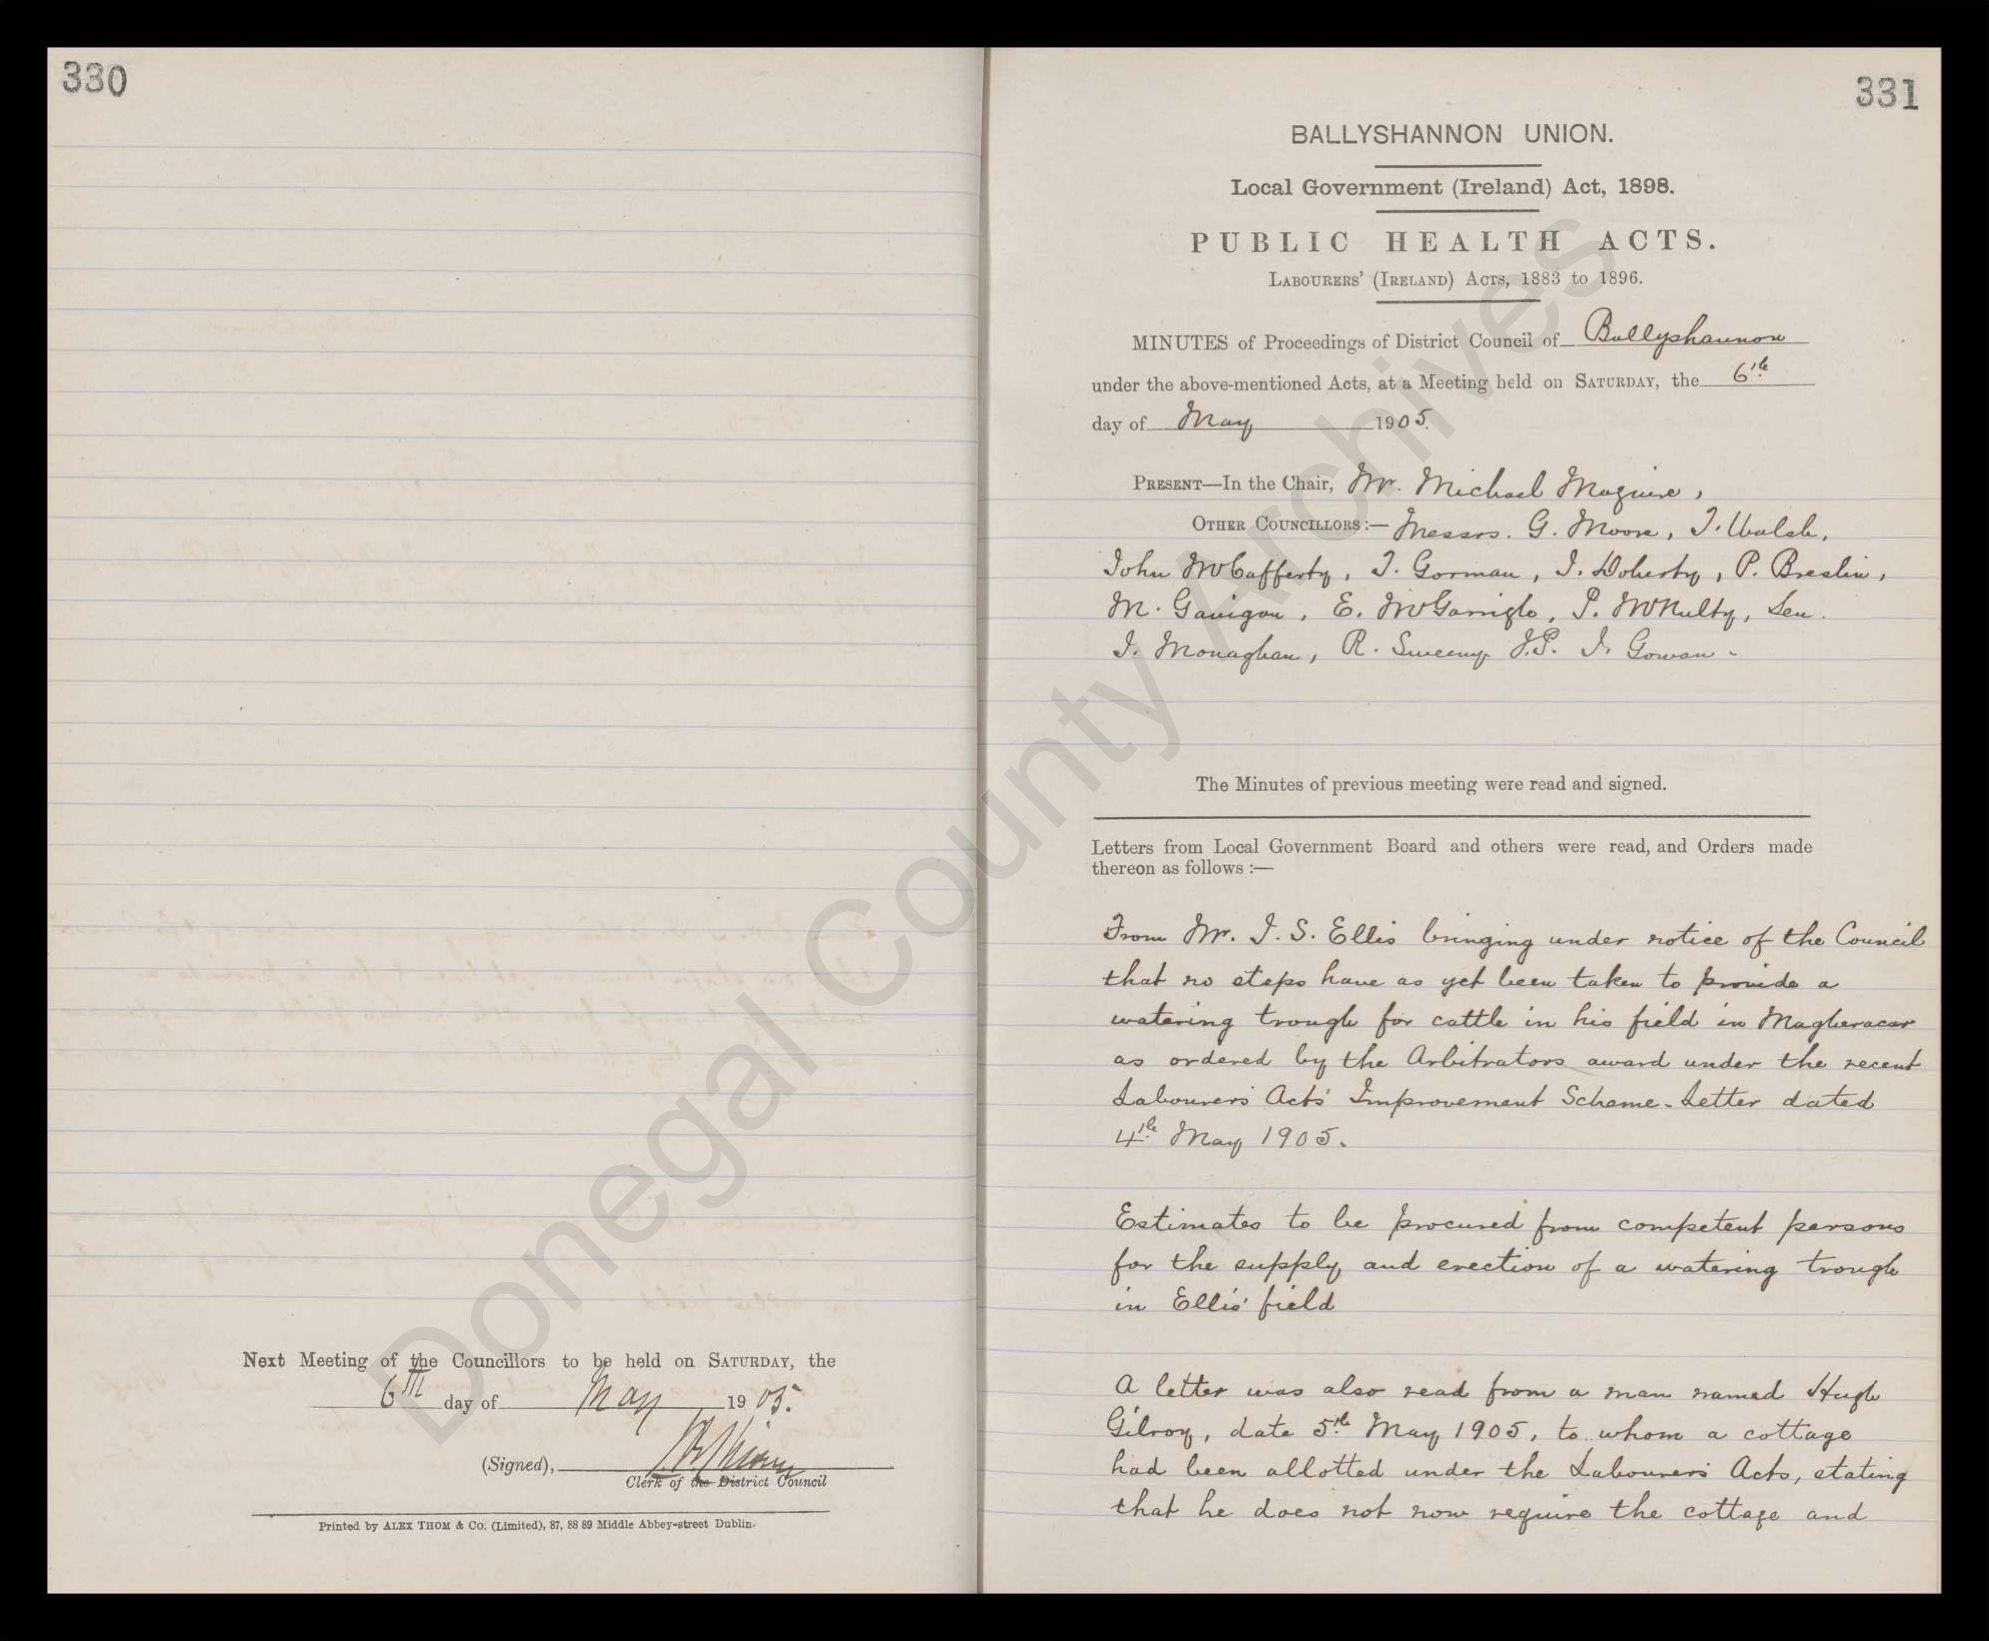 330
Next Meeting of the Councillors to be held on SATURDAY, the
6TH day of May 1905.
(Signed),
Clerk of the District Council
Printed by ALEX THOM & Co. (Limited), 87, 88 89 Middle Abbey-street Dublin.
331
BALLYSHANNON UNION.
Local Government (Ireland) Act, 1898.
PUBLIC HEALTH ACTS.
LABOURERS' (IRELAND) ACTS, 1883 to 1896.
MINUTES of Proceedings of District Council of Ballyshannon
under the above-mentioned Acts, at a Meeting held on SATURDAY, the 6th
day of May 1905.
PRESENT—In the Chair, Mr. Michael Maguire,
OTHER COUNCILLORS:— Messrs. G. Moore, T. Walsh,
John McCafferty, T. Gorman, J. Doherty, P. Breslin,
M. Gavigan, E. McGarrigle, P. McNulty, Sen.
J. Monaghan, R. Sweeny J.P. J. Gowan -
The Minutes of previous meeting were read and signed.
Letters from Local Government Board and others were read, and Orders made
thereon as follows :—
From Mr. J. S. Ellis bringing under notice of the Council
that no steps have as yet been taken to provide a
watering trough for cattle in his field in Magheracar
as ordered by the Arbitrators award under the recent
Labourers Acts' Improvement Scheme - Letter dated
4th May 1905.
Estimates to be procured from competent persons
for the supply and erection of a watering trough
in Ellis' field
A letter was also read from a man named Hugh
Gilroy, date 5th May 1905, to whom a cottage
had been allotted under the Labourers Acts, stating
that he does not now require the cottage and
Donegal County Archives